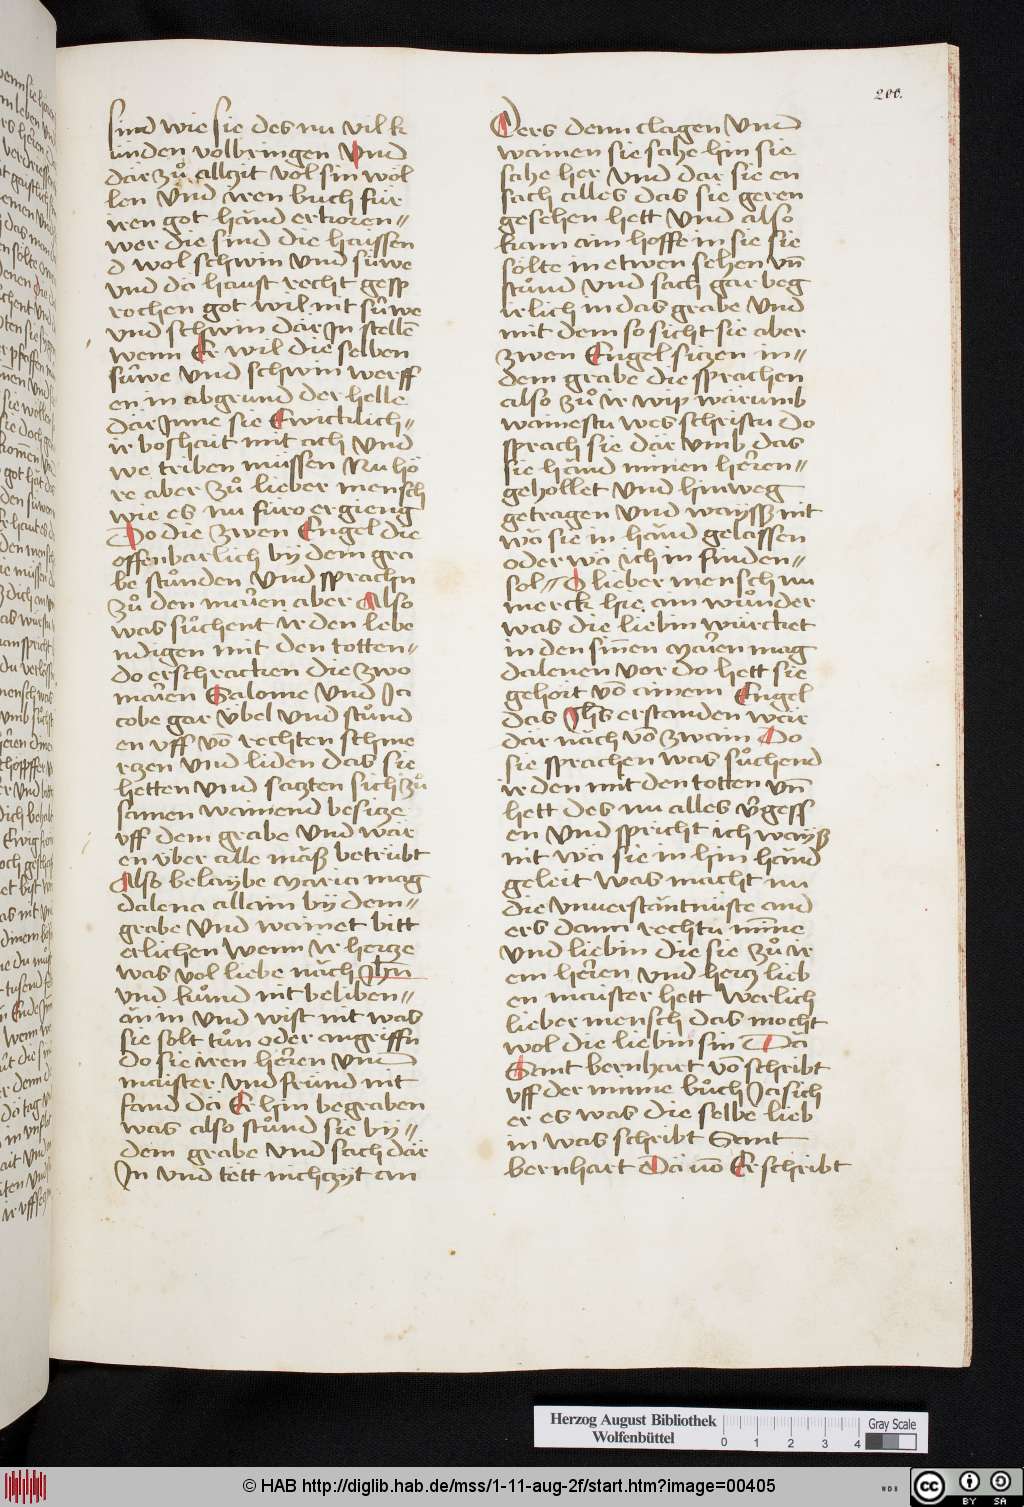 200.
sind wie sie des nu vil k
únden volbringen Vnd
där zů allczit vol sin wöl
len Vnd iren buch für
iren got händ erkoren〃
wer die sind die haissen
d wol schwin Vnd süwe
vnd dä haust recht gesp
rochen got wil nit süwe
vnd schwin där Jn stellē
wenn Er wil die selben
süwe Vnd schwin werff
en in abgrund der helle
där Jnne sie Ewicklich〃
ir boshait mit ach Vnd
we triben müssen Nu hö
re aber zů lieber mensch
wie es nu füro ergieng
Do die zwen Engel die
offenbarlich bÿ dem gra
be stůnden Vnd sprachn
zů den mariē aber Also
was sůchent ir den lebe
ndigen mit den totten〃
do erschracken die zwo
marien Salome Vnd Ja
cobe gar Vbel Vnd stůnd
en vff vō rechten schme
rczen Vnd liden das sie
hetten Vnd saczten sich zů
samen wainend besicze
vff dem grabe Vnd wär
en vber alle mäß betrübt
Also belaybe maria mag
dalena allain bÿ dem〃
grabe Vnd wainet bitt
erlichen Wenn ir hercze
was vol liebe näch Jhm
vnd kůnd nit beliben〃
än in Vnd wist nit was
sie solt tůn oder angriffn
do sie iren herren Vnd
maister Vnd fründ nit
fand dä Er hin begraben
was also stůnd sie bÿ〃
dem grabe Vnd sach där
Jn vnd tett nichczÿt an
Ders denn clagen Vnd
wainen sie sahe hin sie
sahe her Vnd där sie en
sach alles das sie geren
gesehen hett Vnd also
kam ain hoffe in sie sie
sölte in etwen sehen vn̄
stůnd Vnd sach gar beg
irlich in das grabe Vnd
mit dem so sicht sie aber
zwen Engel siczen in〃
dem grabe die sprachen
also zů ir wip warumb
wainestu wes schristu do
sprach sie där vmb das
sie händ minen herren〃
gehollet Vnd hinweg
getragen Vnd waÿß nit
wä sie in händ gelassen
oder wä ich in finden〃
sol〃 O lieber mensch nu
merck hie ain wůnder
was die liebin würcket
in den sinnen marien mag
dalenen vor do hett sie
gehört vō ainem Engel
das Jhs erstanden wär
där näch vō zwain Do
sie sprachen was sůchend
ir den mit den totten vn̄
hett des nu alles v̄gess
en Vnd spricht ich waÿß
nit wä sie in hin händ
geleit was macht nu
die vnuerstäntnüste and
ers dann rechtü minne
vnd liebin die sie zů ir
em herren vnd hercz lieb
en maister hett Werlich
lieber mensch das mocht
wol die liebin sin Dä
Sant bernhart vō schribt
vff der minne bůch Ja sich
er es was die selbe lieb
in was schribt Sant
bernhart Dä uō Er schribt
Herzog August Bibliothek
Wolfenbüttel
0 1 2 3 4
Gray Scale
© HAB http://diglib.hab.de/mss/1-11-aug-2f/start.htm?image=00405
WDB
cc BY SA